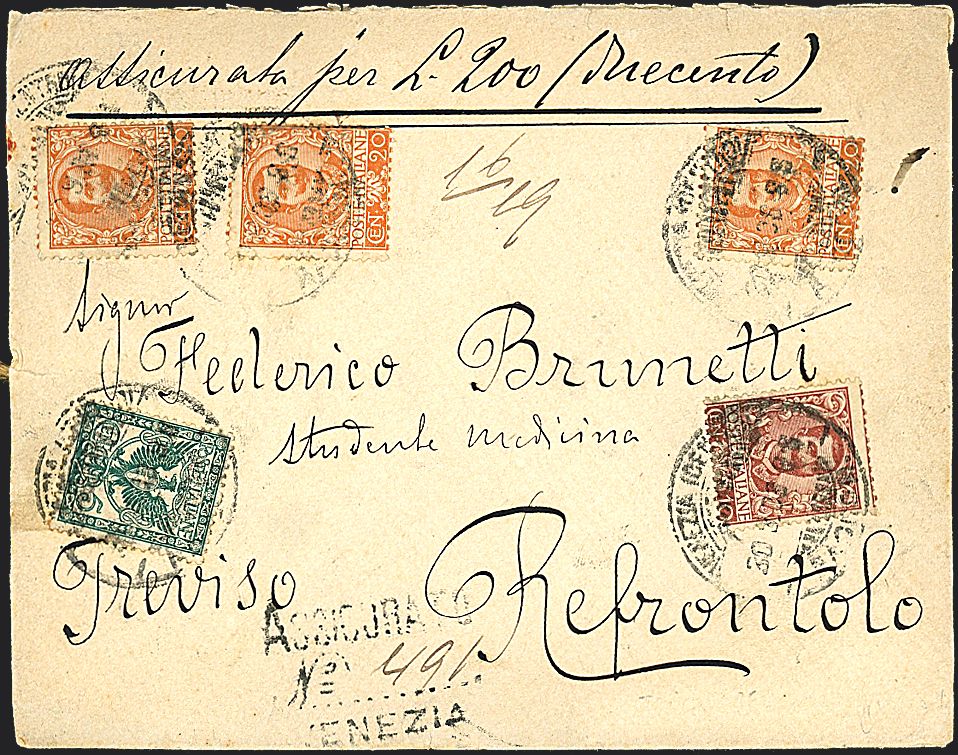 Assicurata per L. 200 (Duecento)
POSTE ITALIANE CEN. 20
POSTE ITALIANE CEN. 20
POSTE ITALIANE CEN. 20
16/19
Signor
Federico Brunetti
studente medicina
POSTE ITALIANE
POSTE ITALIANE
VENEZIA
Treviso Refrontolo
ASSICURATO
Nº 491
VENEZIA